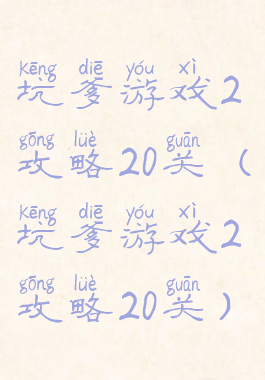 kēng diē yóu xì
坑爹游戏2
gōng lüè guān
攻略20关（
kēng diē yóu xì
坑爹游戏2
gōng lüè guān
攻略20关）